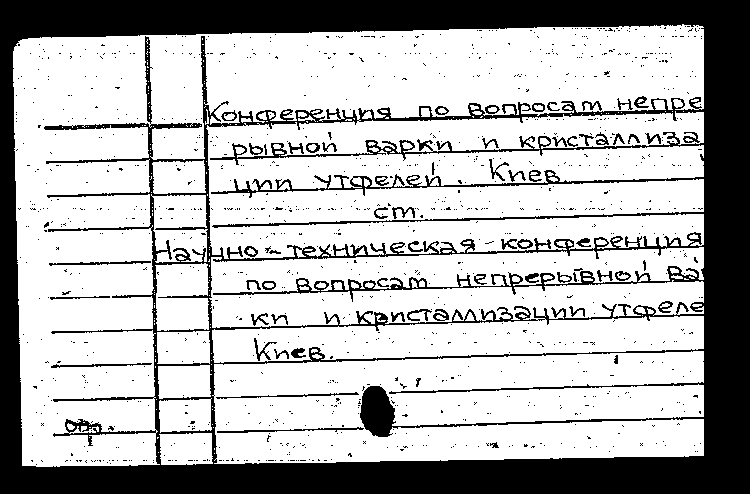 Конференция по вопросам непре
рывной варки и кристаллиза
ции утфелей. Киев
ст.
Научно-техническая конференция
по вопросам непрерывной вар
ки и кристаллизации утфеле
Киев.